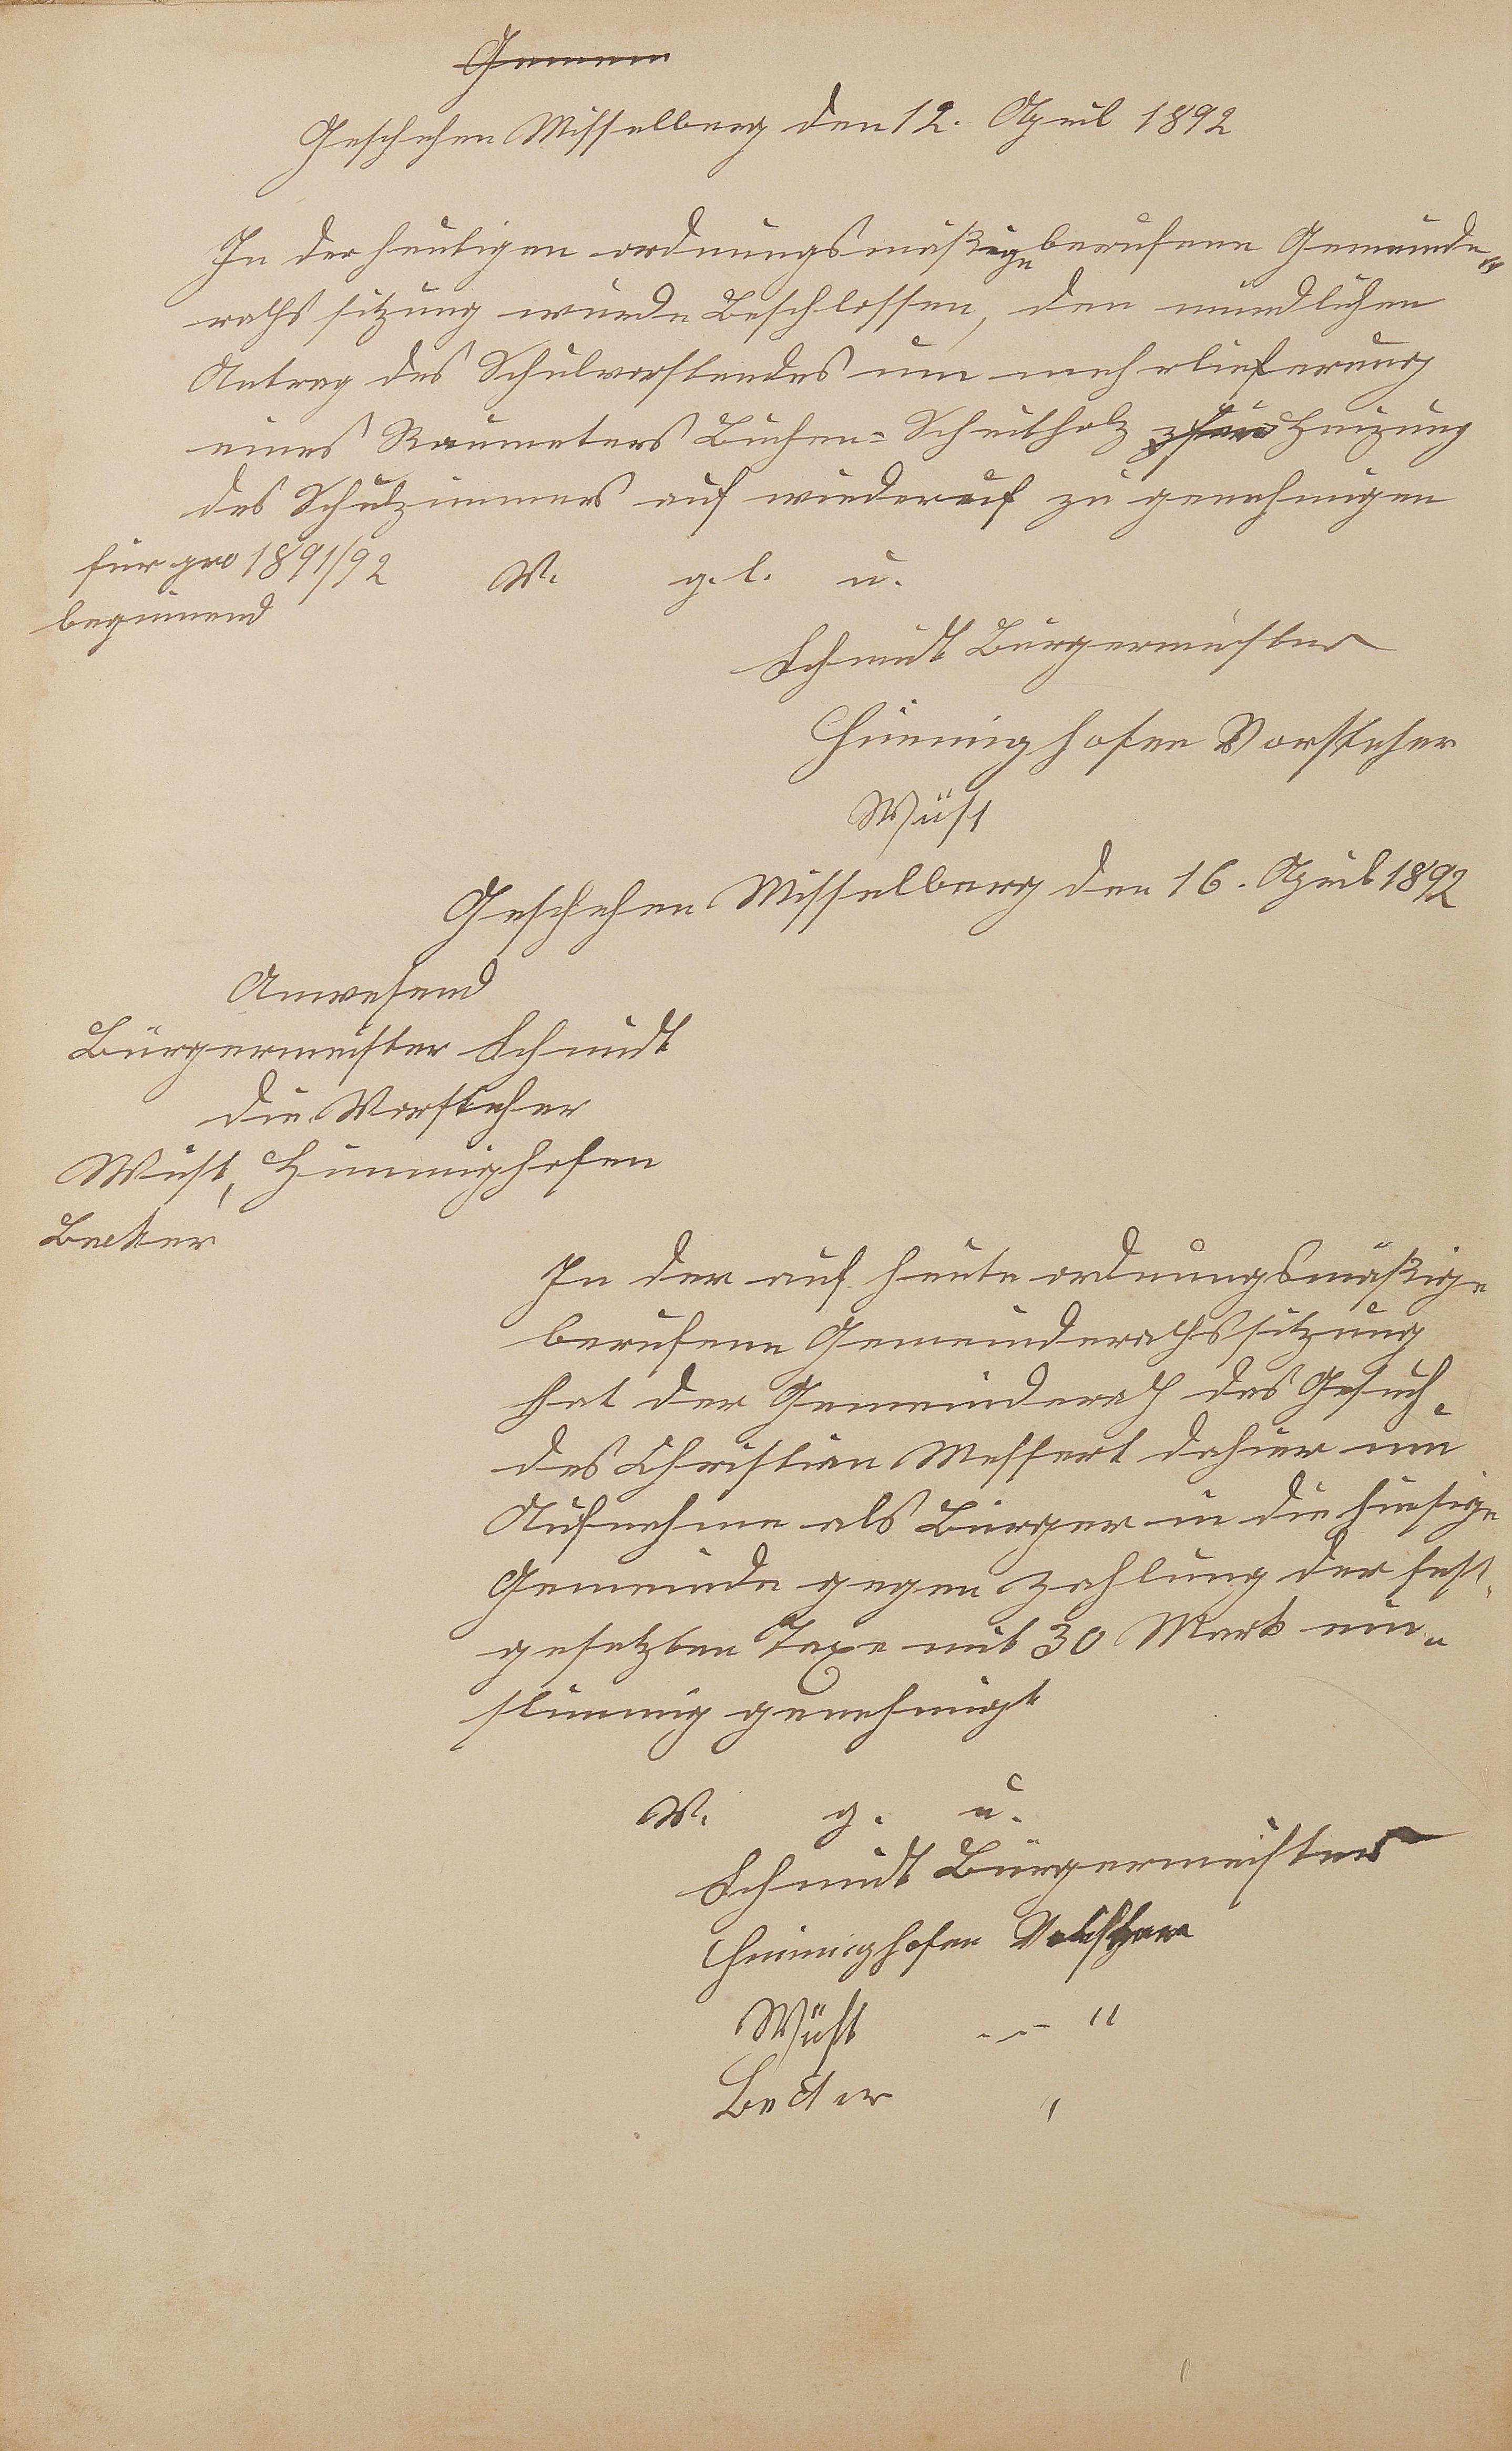 Geschehen Misselberg den 12. April 1892
In der heutigen ordnungsmäßige berufene Gemeinde„
rathssitzung wurde Beschlossen, den mündlichen
Antrag des Schulvorstandes um mehrlieferung
eines Raumeters Buchen=Scheitholz für Heizung
des Schulzimmers auf wiederruf zu genehmigen
für pro 1891/92
beginnend
V. g. l. u.
Schmidt Bürgermeister
Hinninghofen Vorsteher
Wüst
Geschehen Misselberg den 16. April 1892
Anwesend
Bürgermeister Schmidt
die Vorsteher
Wüst, Hinninghofen
Becker
In der auf heute ordnungsmäßige
berufene Gemeinderathssitzung
hat der Gemeinderath das Gesuch
des Christian Meffert dahier um
Aufnahme als Bürger in die hiesige
Gemeinde gegen Zahlung der fest„
gesetzten Taxe mit 30 Mark ein„
stimmig genehmigt
V. g. u.
Schmidt Bürgermeister
Hinninghofen Vorsteher
Wüst -- "
Becker "